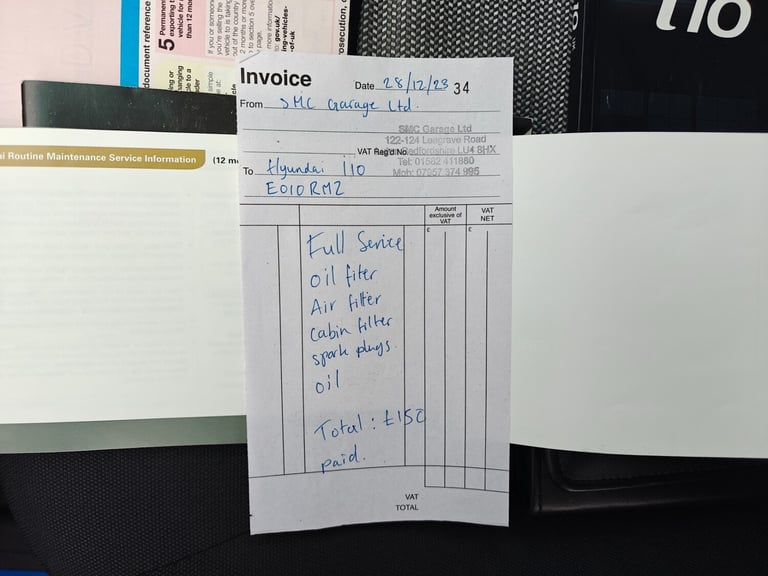 document reference
5 Permanent
exporting t
vehicle for
than 12 mon
If you or someon
you're selling the
vehicle to is taking
out of the country
2 months or more
to section 5 ov
page.
more information
to: gov.uk/
ing-vehicles-
of-uk
osecution.
i10
Invoice
Date 28/12/23 34
From SMC Garage Ltd.
SMC Garage Ltd
122-124 Leagrave Road
VAT Reg'd No. Bedfordshire LU4 8HX
Tel: 01582 411880
To Hyundai i10
Mob: 07957 374 995
EO10RMZ
Amount
exclusive of
VAT
VAT
NET
£ £
Full Service
oil fiter
Air filter
Cabin filter
spark plugs.
oil
Total : £150
paid.
VAT
TOTAL
ai Routine Maintenance Service Information (12 m